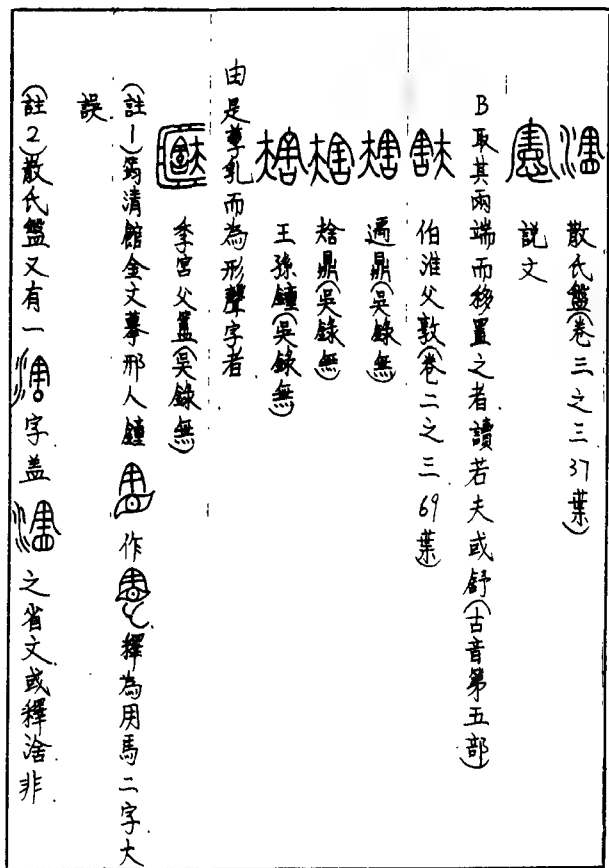 散氏盤(卷三之三37葉)
説文
B取其兩端而移置之者讀若夫或舒(古音第五部)
伯淮父敦(卷二之三69葉)
遹鼎(吳錄無)
𦧶鼎(吳錄無)
王孫鐘(吳錄無)
由是孳乳而為形聲字者
季宮父簠(吳錄無)
(註1)筠清館金文摹邢人鐘 作 釋為用馬二字大
誤
(註2)散氏盤又有一 字盖 之省文或釋浛非